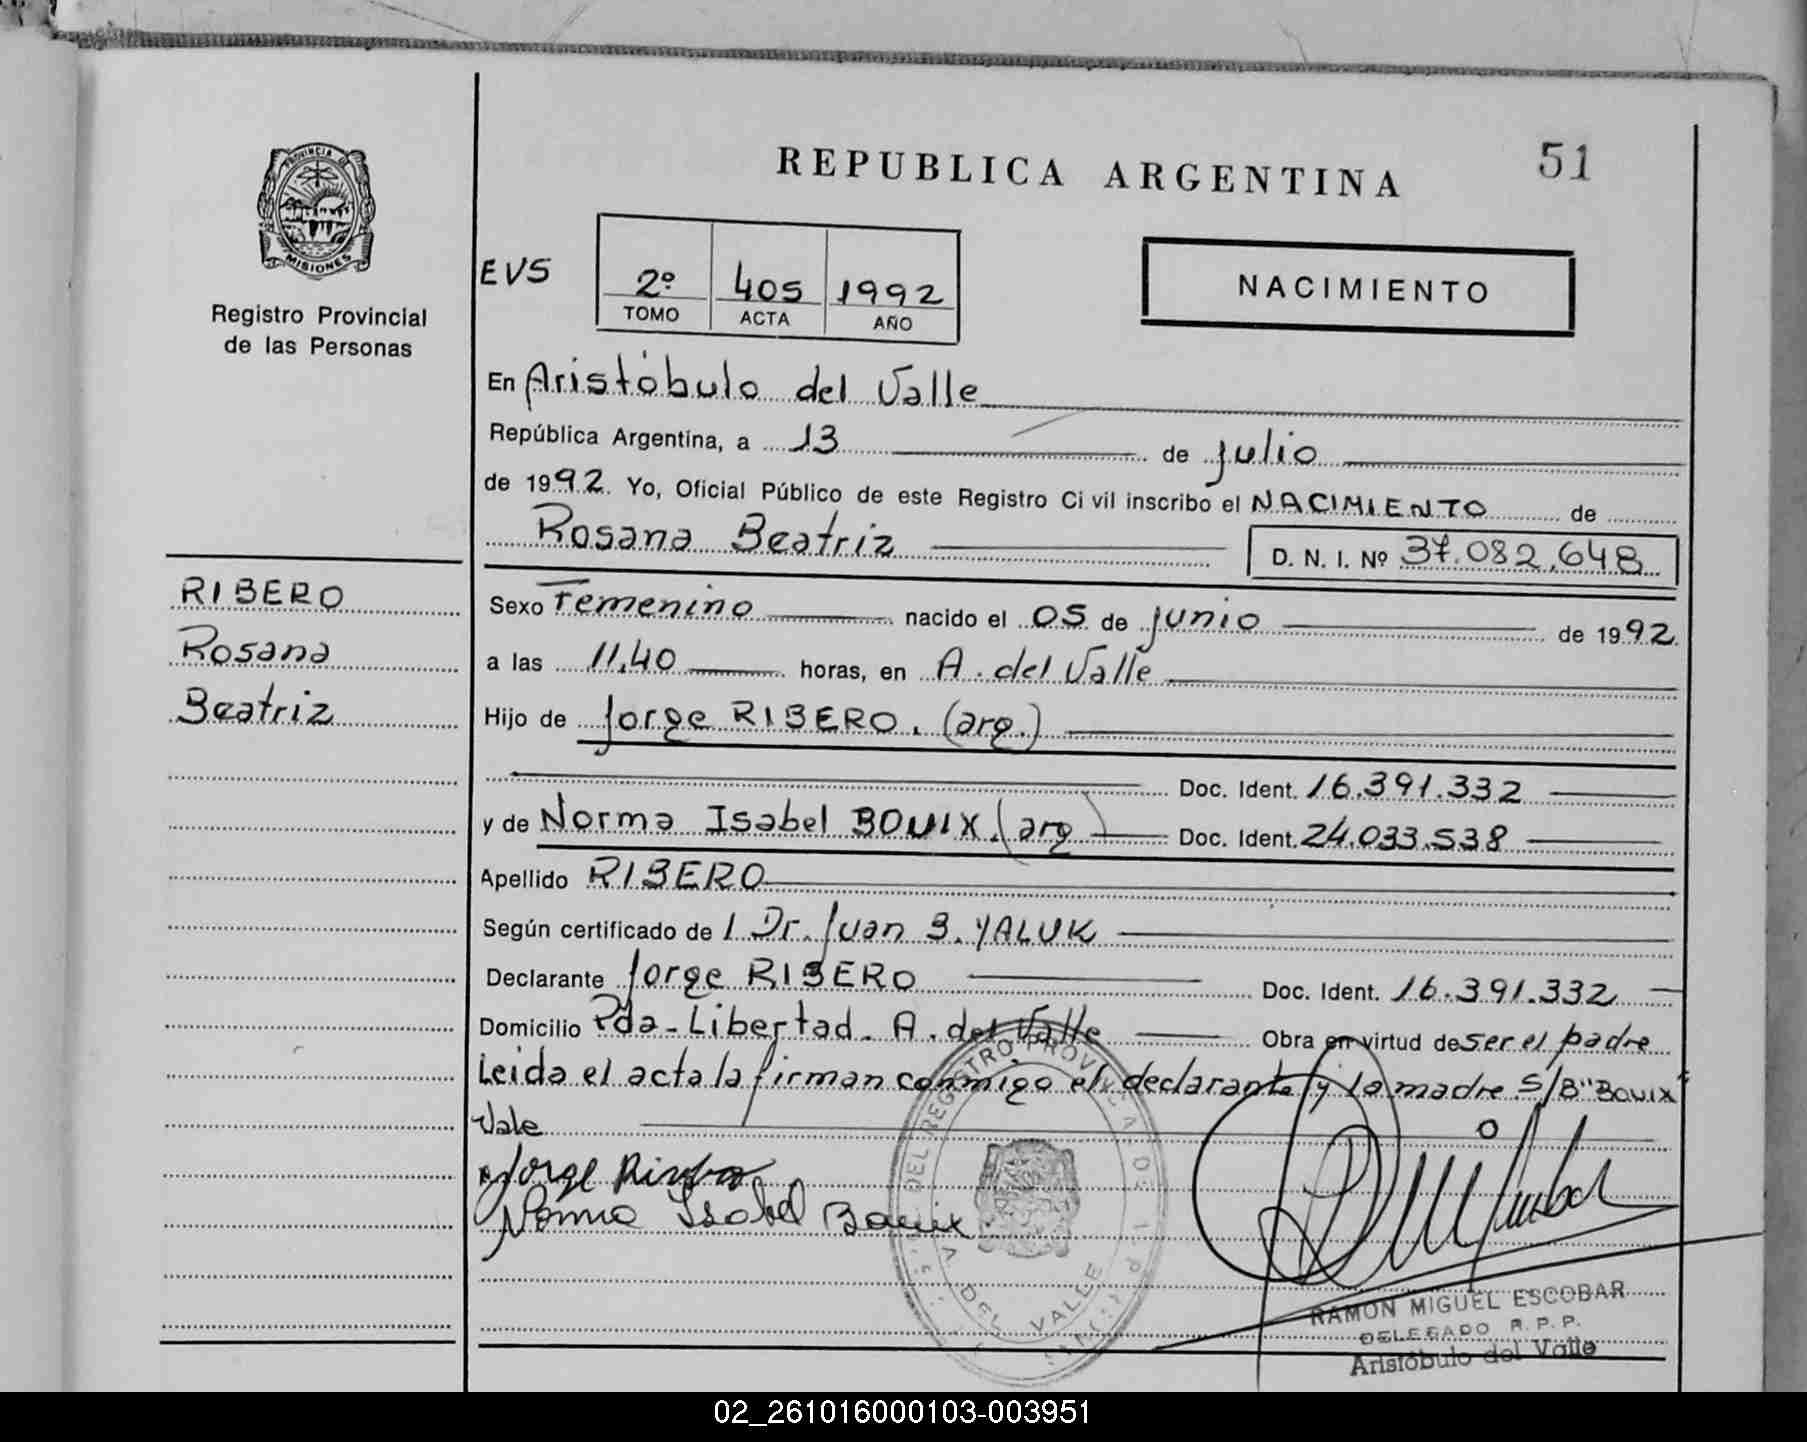 51
REPUBLICA ARGENTINA
PROVINCIA DE
MISIONES
Registro Provincial
de las Personas
EVS
2º 405 1992
TOMO ACTA AÑO
NACIMIENTO
En Aristóbulo del Valle
República Argentina, a 13 de Julio
de 1992. Yo, Oficial Público de este Registro Civil inscribo el NACIMIENTO de
Rosana Beatriz D. N. I. Nº 37.082.648
RIBERO
Rosana
Beatriz
Sexo Femenino nacido el 05 de junio de 1992
a las 11,40 horas, en A. del Valle
Hijo de Jorge RIBERO. (arg.)
Doc. Ident. 16.391.332
y de Norma Isabel BOUIX. (arg) Doc. Ident. 24.033.538
Apellido RIBERO
Según certificado de l Dr. Juan B. YALUK
Declarante Jorge RIBERO Doc. Ident. 16.391.332
Domicilio Pda-Libertad. A. del Valle Obra en virtud de ser el padre
Leida el acta la firman conmigo el declarante y la madre S/B "BOUIX"
Vale
Jorge
Norma Isabel Bouix
DEL REGISTRO PROVINCIAL DE
DEL VALLE
RAMON MIGUEL ESCOBAR
DELEGADO R.P.P.
Aristóbulo del Valle
02_261016000103-003951